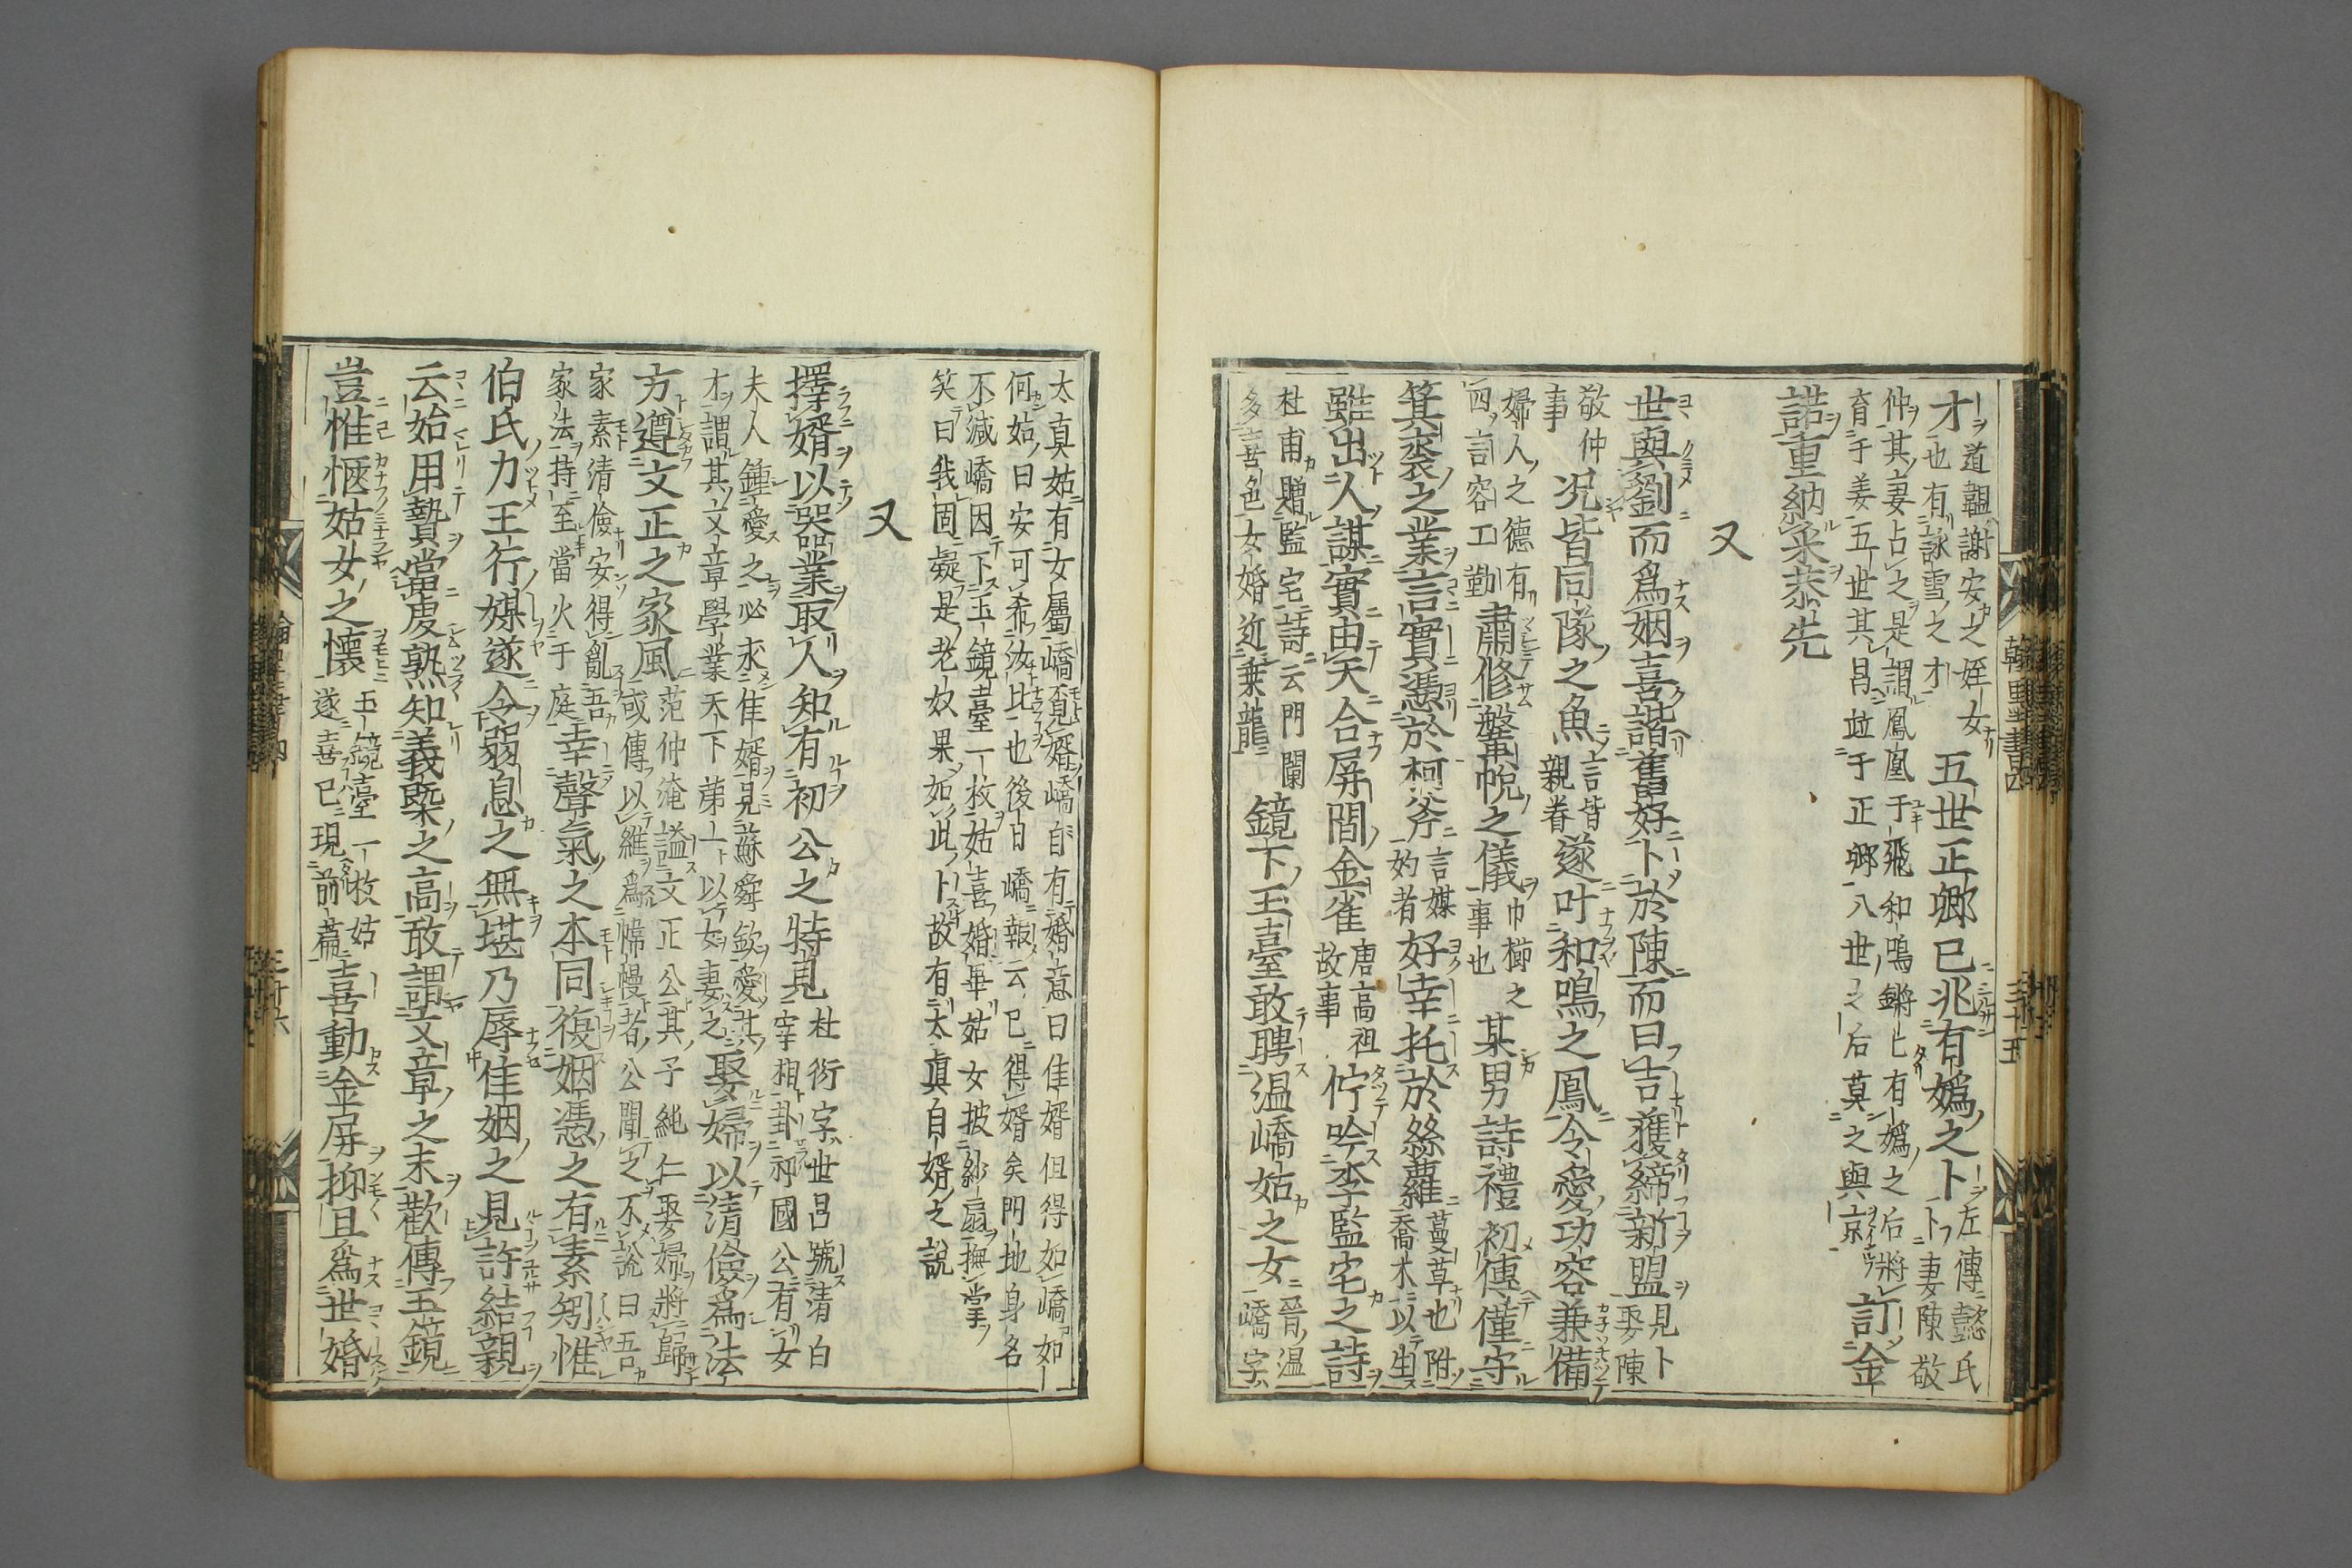 才也有詠雪之才道韞謝安之姪女五世正卿已兆有嬀之卜左傳懿氏卜妻陳敬
仲其妻占之是謂鳳凰于飛和鳴鏘匕有嬀之后將育于姜五世其昌竝于正卿八世之后莫之與京訂金
諾重納采恭先
又
世與劉而爲姻喜諧舊好卜於陳而曰吉獲締新盟見卜娶陳
敬仲事況皆同隊之魚言皆親眷遂叶和鳴之鳳令愛功容兼備
婦人之德有四言容工勤肅修鞶帨之儀巾櫛之事也某男詩禮初傳僅守
箕裘之業言實憑於柯斧言媒妁者好幸托於絲蘿蔓草也附喬木以生
雖出人謀實由天合屏間金雀唐高祖故事佇吟李監宅之詩
杜甫贈監宅詩云門闌多喜色女婚近乗龍鏡下玉臺敢聘温嶠姑之女晉温嶠字
太真姑有女屬嶠覓婿嶠自有婚意曰佳婿但得如嶠如
何姑曰安可希汝比也後日嶠報云已得婿矣門地身名
不減嶠因下玉鏡臺一枚姑喜婚畢姑女披紗扇撫掌
笑曰我固疑是老奴果如此卜故有太真自婿之說
又
擇婿以器業取人知有初公之特見杜衍字世昌號清白宰相封祁國公有女
夫人鍾愛之必求佳婿見蘇舜欽愛其才謂其文章學業天下第一以女妻之娶婦以清儉爲法
方遵文正之家風范仲淹謚文正公其子純仁娶婦將歸或傳以維爲幃幔者公聞之不說曰吾
家素清儉安得亂吾家法持至當火于庭幸聲氣之本同復姻憑之有素矧惟
伯氏力主行媒遂令弱息之無堪乃辱佳姻之見許結親
云始用贄當虔熟知義槩之高敢謂文章之末歡傳玉鏡
豈惟愜姑女之懷玉鏡臺一枚姑遂喜已現前篇喜動金屏抑且爲世婚